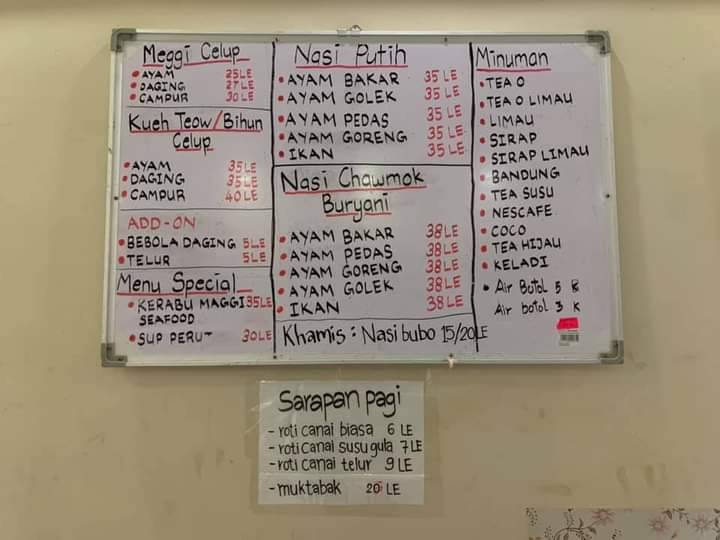 Meggi Celup
• AYAM 25LE
• DAGING 27LE
• CAMPUR 30LE
Kueh Teow/Bihun
Celup
• AYAM 35LE
• DAGING 35LE
• CAMPUR 40LE
ADD-ON
• BEBOLA DAGING 5LE
• TELUR 5LE
Menu Special
• KERABU MAGGI 35LE
SEAFOOD
• SUP PERUT 30LE
Nasi Putih
• AYAM BAKAR 35 LE
• AYAM GOLEK 35 LE
• AYAM PEDAS 35 LE
• AYAM GORENG 35 LE
• IKAN 35 LE
Nasi Chawmok
Buryani
• AYAM BAKAR 38LE
• AYAM PEDAS 38LE
• AYAM GORENG 38LE
• AYAM GOLEK 38LE
• IKAN 38LE
Khamis : Nasi bubo 15/20LE
Minuman
• TEA O
• TEA O LIMAU
• LIMAU
• SIRAP
• SIRAP LIMAU
• BANDUNG
• TEA SUSU
• NESCAFE
• COCO
• TEA HIJAU
• KELADI
• Air Botol 5 B
Air botol 3 K
Sarapan pagi
- roti canai biasa 6 LE
- roti canai susu gula 7 LE
- roti canai telur 9 LE
- muktabak 20 LE